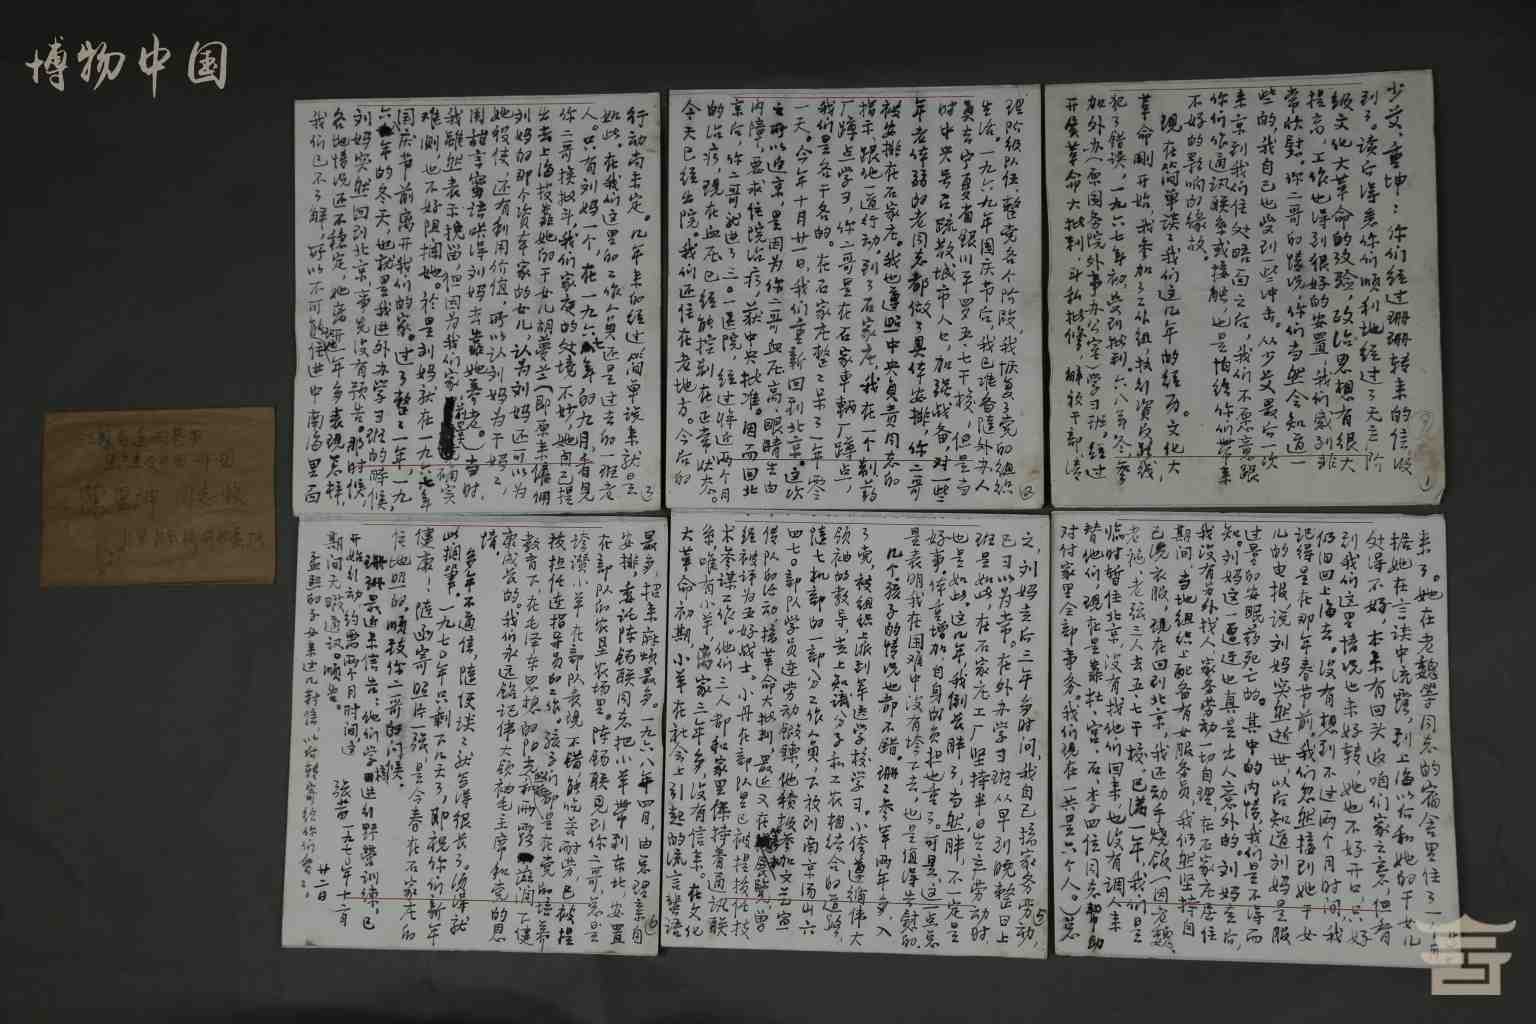 博物中国
少文、重坤：你们经过珊珊转来的信收
到了。读后得悉你们顺利地经过了无产阶
级文化大革命的考验，政治思想有很大
提高，工作也得到很好的安置，我们感到非
常欣慰。你二哥的情况你们当然会知道一
些的。我自己也受到一些冲击。从少文最后一次
来京到我们住处晤面之后，我们不愿意跟
你们作通讯联系或接触，也是怕给你们带来
不好的影响的缘故。
现在简单谈谈我们这几年的经历。文化大
革命刚开始，我参加了工作组，执行资反路线，
犯了错误，一九六七年初受到批判。六八年冬参
加外办（原国务院外事办公室）学习班，经过
开展革命大批判，斗私批修，解放干部，清
理阶级队伍，整党各个阶段，我恢复了党的组织
生活。一九六九年国庆节后，我已准备随外办人
员去宁夏省银川平罗五七干校，但是当
时中央号召疏散城市人口，加强战备，对一些
年老体弱的老同志都做了具体安排，你二哥
被安排在石家庄。我也遵照中央负责同志的
指示，跟他一道行动。到了石家庄，我在一个制药
厂蹲点学习，你二哥是在石家庄车辆厂蹲点，
我们是各干各的。在石家庄整整呆了一年零
一天，今年十月廿一日，我们重新回到北京。这次
之所以返京，是因为你二哥血压高，眼睛生白
内障，要求住院治疗，获中央批准。因而回北
京后，你二哥就进了三〇一医院，经过将近两个月
的治疗，现在血压已经能控制在正常状态。
今天已经出院。我们还住在老地方。今后的
行动尚未定。几年来的经过，简单说来就是
如此。在我们这里的工作人员还是过去的一班老
人。只有刘妈一个，在一九六七年的九月，看见
你二哥挨批斗，我们家庭的处境不妙，她自己提
出去上海投靠她的干女儿胡蔓兰（即原来雇佣
刘妈的那个资本家的女儿，认为刘妈还可以为
她役使，还有利用价值，所以认刘妈为干妈，
用甜言蜜语哄得刘妈去靠她养老。）当时，
我虽然表示挽留，但因为我们家前景确实
难测，也不好阻拦她。于是刘妈就在一九六七年
国庆节前离开我们的家。过了整整一年，一九
六八年的冬天，也就是我进外办学习班的时候，
刘妈突然一回到北京，事先没有预告。那时候，
各地情况还不稳定，她离开年多表现怎样，
我们已不了解，所以不可能让她进中南海里面
来了。她在老魏等同志的宿舍里住了一个月
据她在言谈中流露，到上海以后和她的干女儿
处得不好，本来有回头返咱们家之意，但看
到我们这里情况也未好转，她也不好开口，只好
仍旧回上海去。没有想到不过两个月时间，我
记得是在那年春节前，我们忽然接到她干女
儿的电报说刘妈突然逝世，以后知道刘妈是服
过量的安眠药死亡的。其中的内情我们是不得而
知。刘妈这一遭迂也真是出人意外的。刘妈走后，
我没有另外找人，家务劳动一切自理，在石家庄居住
期间，当地组织上配备有女服务员，我们仍然坚持自
己洗衣服，现在回到北京，我还动手烧饭（因为魏、
老郝、老张三人去五七干校已满一年，我们是
临时暂住北京，没有找他们回来，也没有调人来
替他们，现在是靠杜、宫、石、李四位同志帮助
对付家里全部事务。我们现在一共是六个人。）总
之，刘妈去后三年多时间，我自己搞家务劳动，
已习以为常。在外办学习班，从早到晚整日上
班是如此，在石家庄工厂坚持半日生产劳动时
也是如此。这几年，我倒发胖了，当然胖，不一定是
好事，体重增加，自身的负担也重了。可是这一点总
是表明我在困难中没有垮下去，也是值得告慰的。
几个孩子的情况也都不错。珊珊参军两年多，入
了党，被组织上派到军医学校学习。小侉遵循伟大
领袖的教导，走上知识分子和工农相结合的道路，
随七机部的一部分工作人员，下放到南京汤山六
四七〇部队学员连劳动锻炼，他积极参加文艺宣
传队的活动，搞革命大批判，最近又在军管会党
经被评为五好战士。小丹在部队里已被提拔任技
术参谋工作。他们三人都和家里保持着通讯联
系。唯有小羊，离家三年多，没有信来。在文化
大革命初期，小羊在社会上引起的流言蜚语
最多，招来麻烦最多。一九六八年四月，由总理亲自
安排，委托陈锡联同志把小羊带到东北，安置
在部队的农垦农场里。陈锡联见到你二哥，总是
夸赞小羊在部队表现不错，能吃苦耐劳，已被提
拔担任连指导员的工作。孩子们都是在党的培养
教育下，在毛泽东思想的阳光和雨露滋润下健
康成长的，我们永远铭记伟大领袖毛主席和党的恩
情。
多年不通信，随便谈谈就写得很长了。海谅就
此搁笔。一九七〇年只剩下几天了，即祝你们新年
健康，随函寄照片一张，是今春在石家庄的
住地照的，顺致你二哥的问候。
珊珊最近来信告：他们学校进行野营训练，已
开始行动，约需两个月时间，这
期间无暇通讯。顺告。
张茜 一九七〇年十二月
廿二日